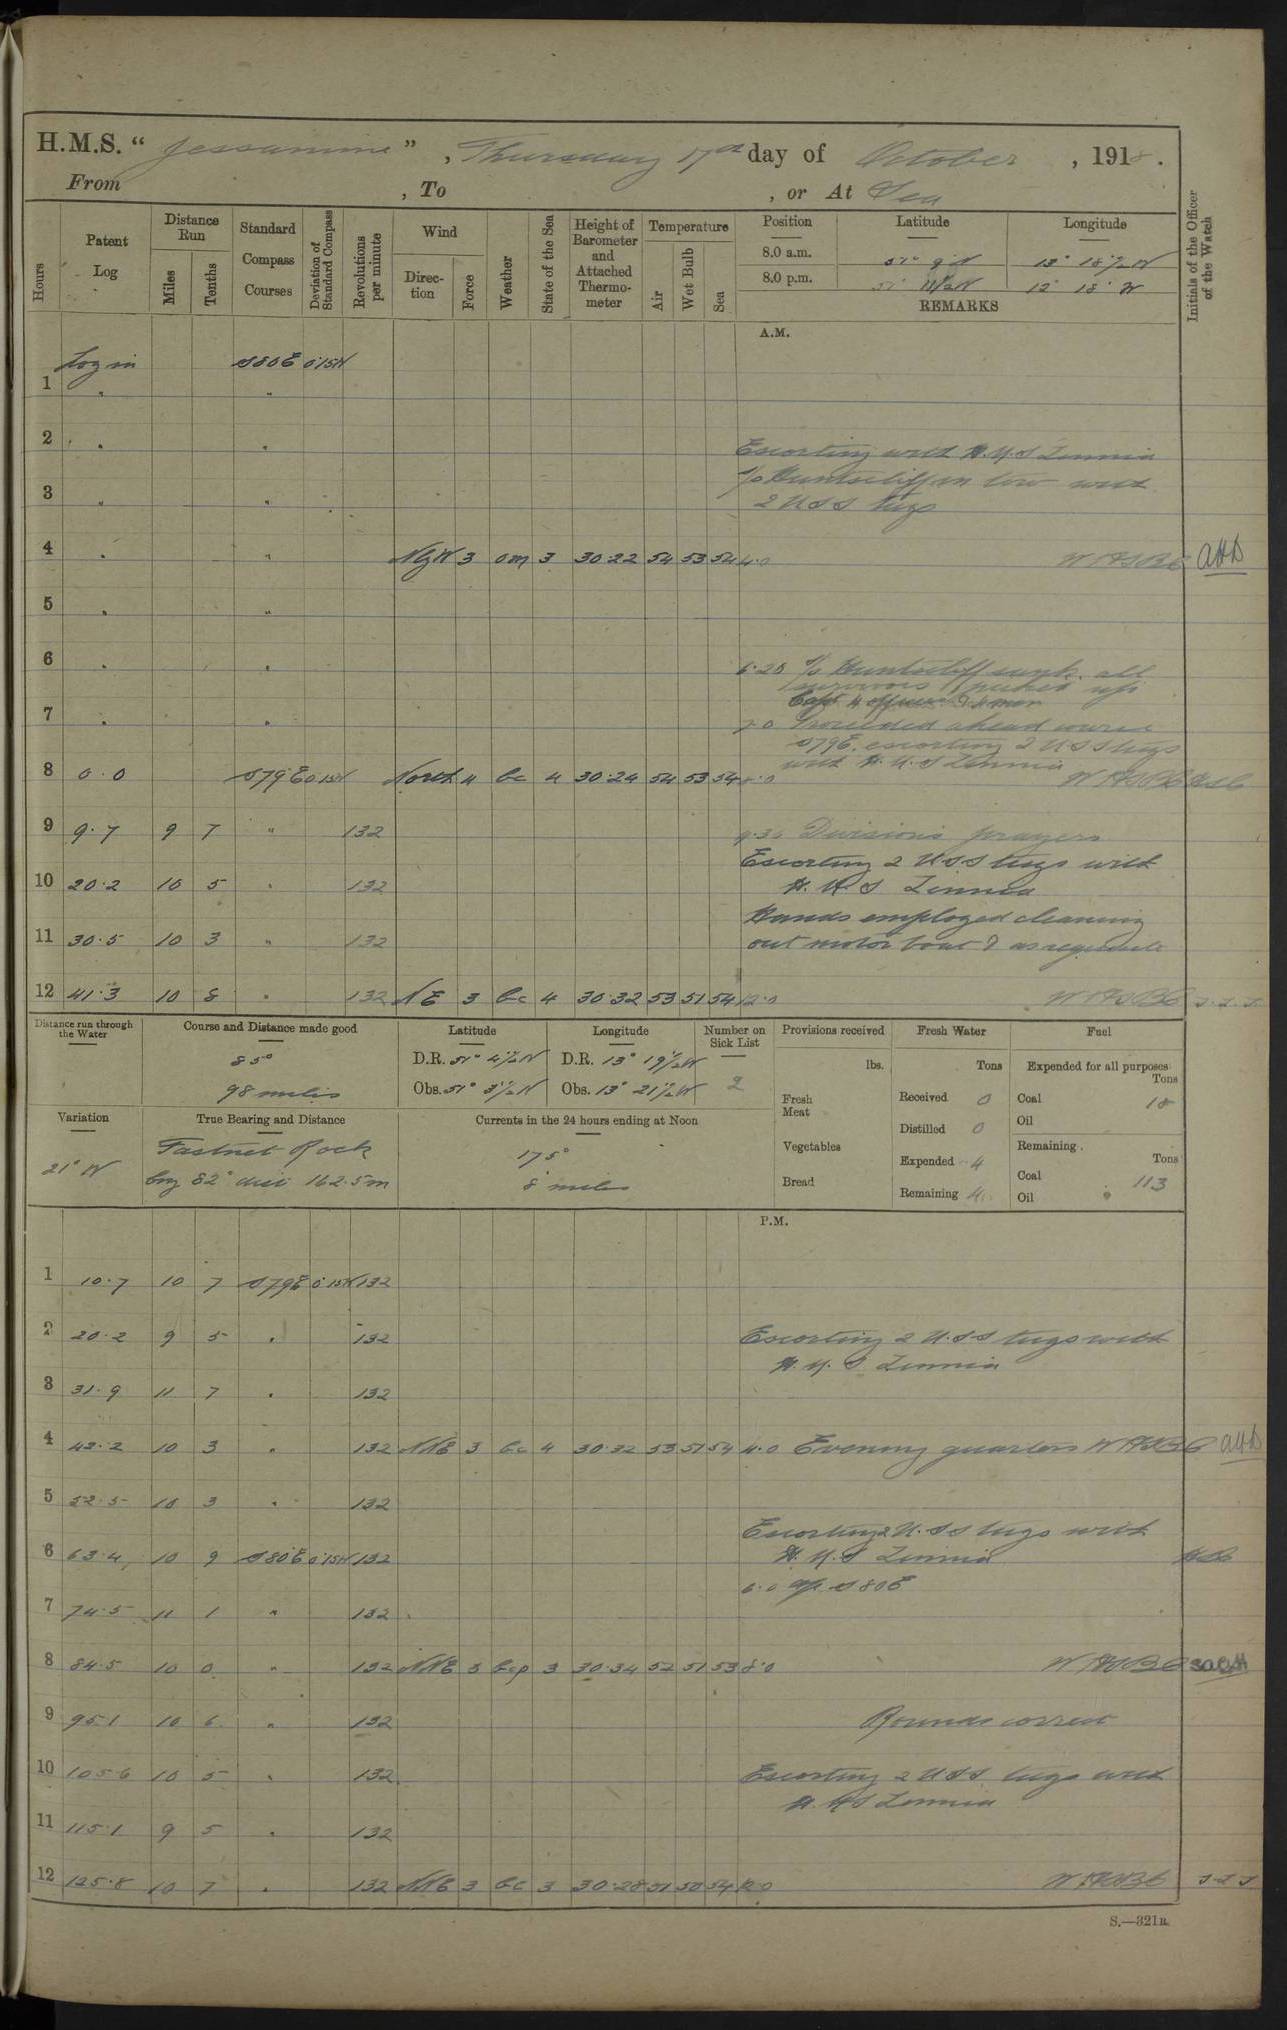 H.M.S. “ Jessamine ” , Thursday 17th day of October , 1918 .
From , To , or At Sea
Hours
Patent Log
Distance Run
Miles
Tenths
Standard Compass Courses
Deviation of Standard Compass
Revolutions per minute
Wind
Direction
Force
Weather
State of the Sea
Height of Barometer and Attached Thermometer
Temperature
Air
Wet Bulb
Sea
Position
Latitude
Longitude
8.0 a.m. 51° 9' N 13° 18½ W
8.0 p.m. 51° 11½ N 12° 18' W
REMARKS
Initials of the Officer of the Watch
A.M.
Log in S80E 0·15W
1 " "
2 " "
Escorting with H.M.S Zinnia
S/S Huntscliff in tow with
3 " "
2 USS tugs
4 " " NbyW 3 om 3 30·22 54 53 54 4·0 AHD
5 " "
6 " " 6·20 S/S Huntscliff sunk. all
survivors picked up
Capt 4 officers & 4 men
7 " " 7·0 Proceeded ahead course
S79E. escorting 2 USS tugs
with H.M.S Zinnia
8 0·0 S79E 0·15W North 4 bc 4 30·24 54 53 54 8·0
9 9·7 9 7 " 132 9·30 Divisions prayers
Escorting 2 USS tugs with
10 20·2 10 5 " 132 H.M.S Zinnia
Hands employed cleaning
11 30·5 10 3 " 132 out motor boat & as requisite
12 41·3 10 8 " 132 NE 3 bc 4 30·32 53 51 54 12·0
Distance run through the Water
Course and Distance made good
85°
98 miles
Latitude
D.R. 51° 4½ N
Obs. 51° 3½ N
Longitude
D.R. 13° 19½ W
Obs. 13° 21½ W
Number on Sick List
2
Provisions received
lbs.
Fresh Meat
Vegetables
Bread
Fresh Water
Tons
Received 0
Distilled 0
Expended 4
Remaining 41
Fuel
Expended for all purposes
Tons
Coal 18
Oil
Remaining
Tons
Coal 113
Oil
Variation
21° W
True Bearing and Distance
Fastnet Rock
brg 82° dist 162·5m
Currents in the 24 hours ending at Noon
175°
8 miles
P.M.
1 10·7 10 7 S79E 0·15W 132
2 20·2 9 5 " 132 Escorting 2 U.S.S tugs with
H.M.S Zinnia
3 31·9 11 7 " 132
4 42·2 10 3 " 132 NNE 3 bc 4 30·32 53 51 54 4·0 Evening quarters AHD
5 52·5 10 3 " 132
Escorting 2 U.S.S tugs with
6 63·4 10 9 S80E 0·15W 132 H.M.S Zinnia
6·0 a/c S80E
7 74·5 11 1 " 132
8 84·5 10 0 " 132 NNE 3 bcp 3 30·34 52 51 53 8·0
9 95·1 10 6 " 132 Rounds correct
10 105·6 10 5 " 132 Escorting 2 USS tugs with
H.M.S Zinnia
11 115·1 9 5 " 132
12 125·8 10 7 " 132 NNE 3 bc 3 30·28 51 50 54 12·0
S.—321B.